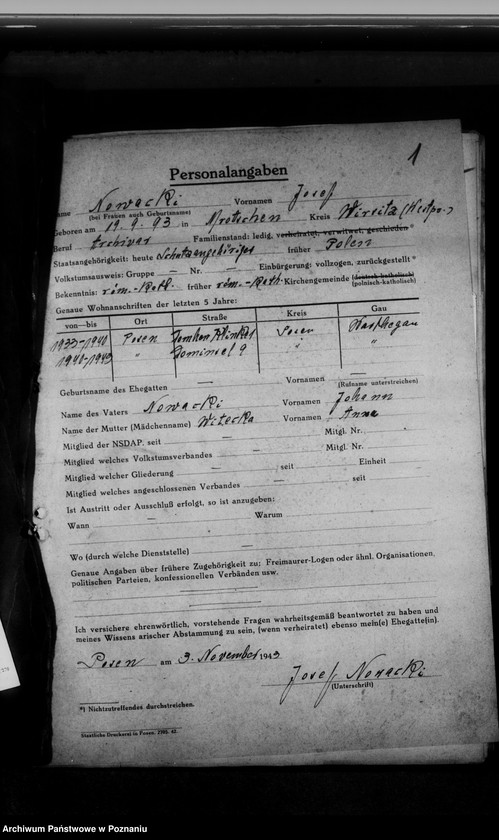 1
Personalangaben
Name Nowacki Vornamen Josef
(bei Frauen auch Geburtsname)
Geboren am 19.9.93 in Mrotschen Kreis Wirsitz (Westpr.)
Beruf Archivar Familienstand: ledig, verheiratet, verwitwet, geschieden*
Staatsangehörigkeit: heute Schutzangehöriger früher Polen
Volkstumsausweis: Gruppe — Nr. — Einbürgerung: vollzogen, zurückgestellt*
Bekenntnis: röm.-kath. früher röm.-kath. Kirchengemeinde (deutsch-katholisch)
(polnisch-katholisch)
Genaue Wohnanschriften der letzten 5 Jahre:
von—bis Ort Straße Kreis Gau
1933-1940 Posen Posen Warthegau
1940-1943 " Dominsel 9 " "
Geburtsname des Ehegatten — Vornamen —
(Rufname unterstreichen)
Name des Vaters Nowacki Vornamen Johann
Name der Mutter (Mädchenname) Witecka Vornamen Anna
Mitglied der NSDAP. seit — Mitgl. Nr.
Mitglied welches Volkstumsverbandes — Mitgl. Nr.
Mitglied welcher Gliederung — seit Einheit
Mitglied welches angeschlossenen Verbandes — seit
Ist Austritt oder Ausschluß erfolgt, so ist anzugeben:
Wann — Warum
Wo (durch welche Dienststelle) —
Genaue Angaben über frühere Zugehörigkeit zu: Freimaurer-Logen oder ähnl. Organisationen,
politischen Parteien, konfessionellen Verbänden usw.
Ich versichere ehrenwörtlich, vorstehende Fragen wahrheitsgemäß beantwortet zu haben und
meines Wissens arischer Abstammung zu sein, (wenn verheiratet) ebenso mein(e) Ehegatte(in).
Posen am 3. November 1943
Josef Nowacki
(Unterschrift)
*) Nichtzutreffendes durchstreichen.
Staatliche Druckerei in Posen. 2785. 42.
Archiwum Państwowe w Poznaniu